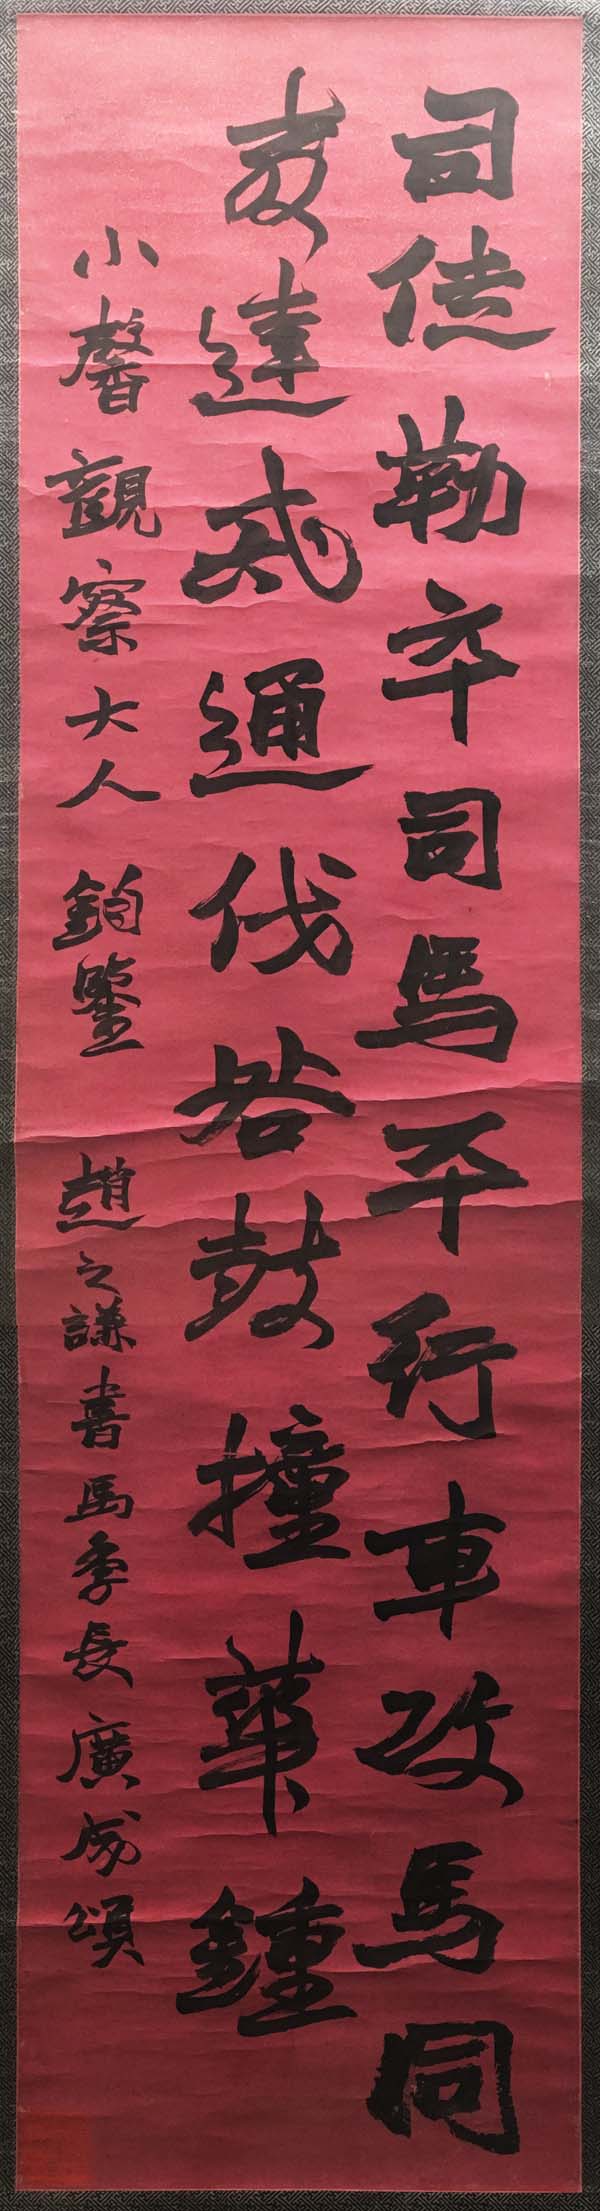 司徒勒卒司馬平行車攻馬同
教達戒通伐咎鼓撞華鍾
小馨觀察大人 鈞鑒 趙之謙書馬季長廣成頌